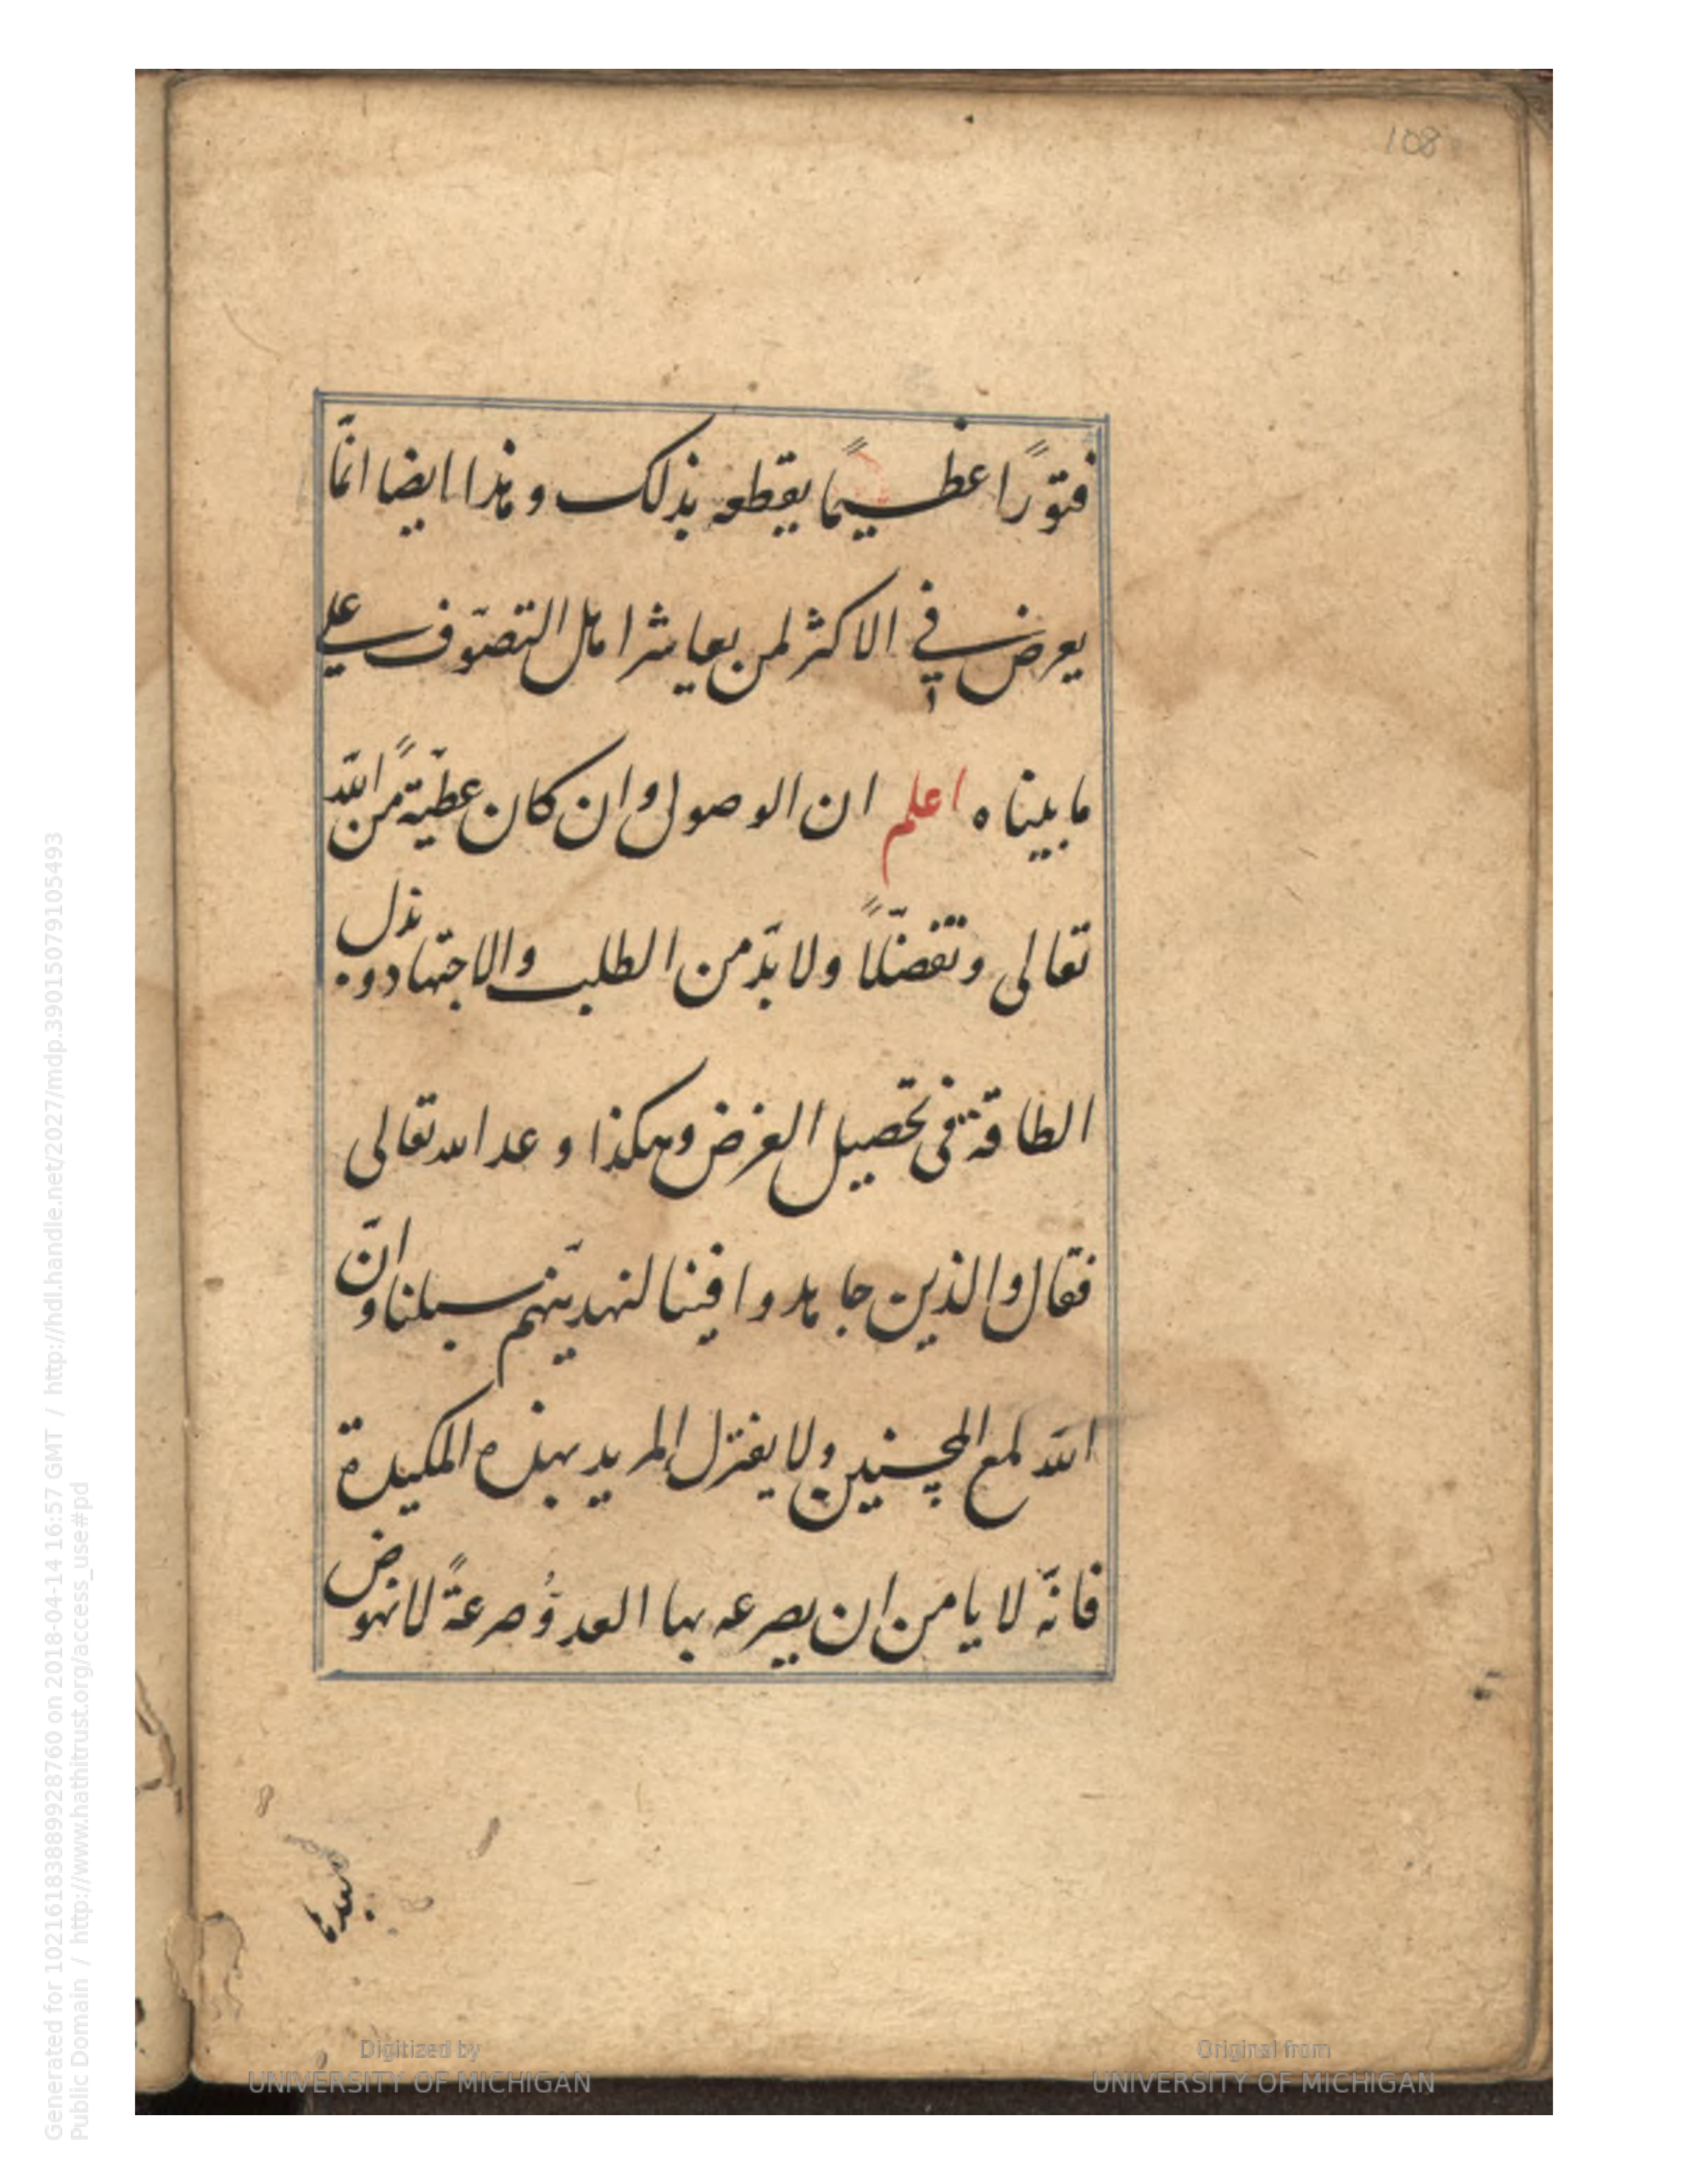 108
فتوّرًا عظيمًا يقطعه بذلك وهذا ايضا انمّا
يعرض في الاكثر لمن يعاشر اهل التصوّف علي
ما بيناه اعلم ان الوصول وان كان عطيّةً من اللّه
تعالى وتفضّلاً ولا بدّ من الطلب والاجتهاد وبذل
الطاقة في تحصيل الغرض وهكذا وعد الله تعالى
فقال والذين جاهدوا فينا لنهدينّهم سبلنا وانّ
اللّه لمع المحسنين ولا يغترل المريد بهذه المكيدة
فانّه لا يامن ان يصرعه بها العدوُّ صرعةً لا نهوض
بعدها
Digitized by
UNIVERSITY OF MICHIGAN
Original from
UNIVERSITY OF MICHIGAN
Generated for 102161838899928760 on 2018-04-14 16:57 GMT / http://hdl.handle.net/2027/mdp.39015079105493
Public Domain / http://www.hathitrust.org/access_use#pd